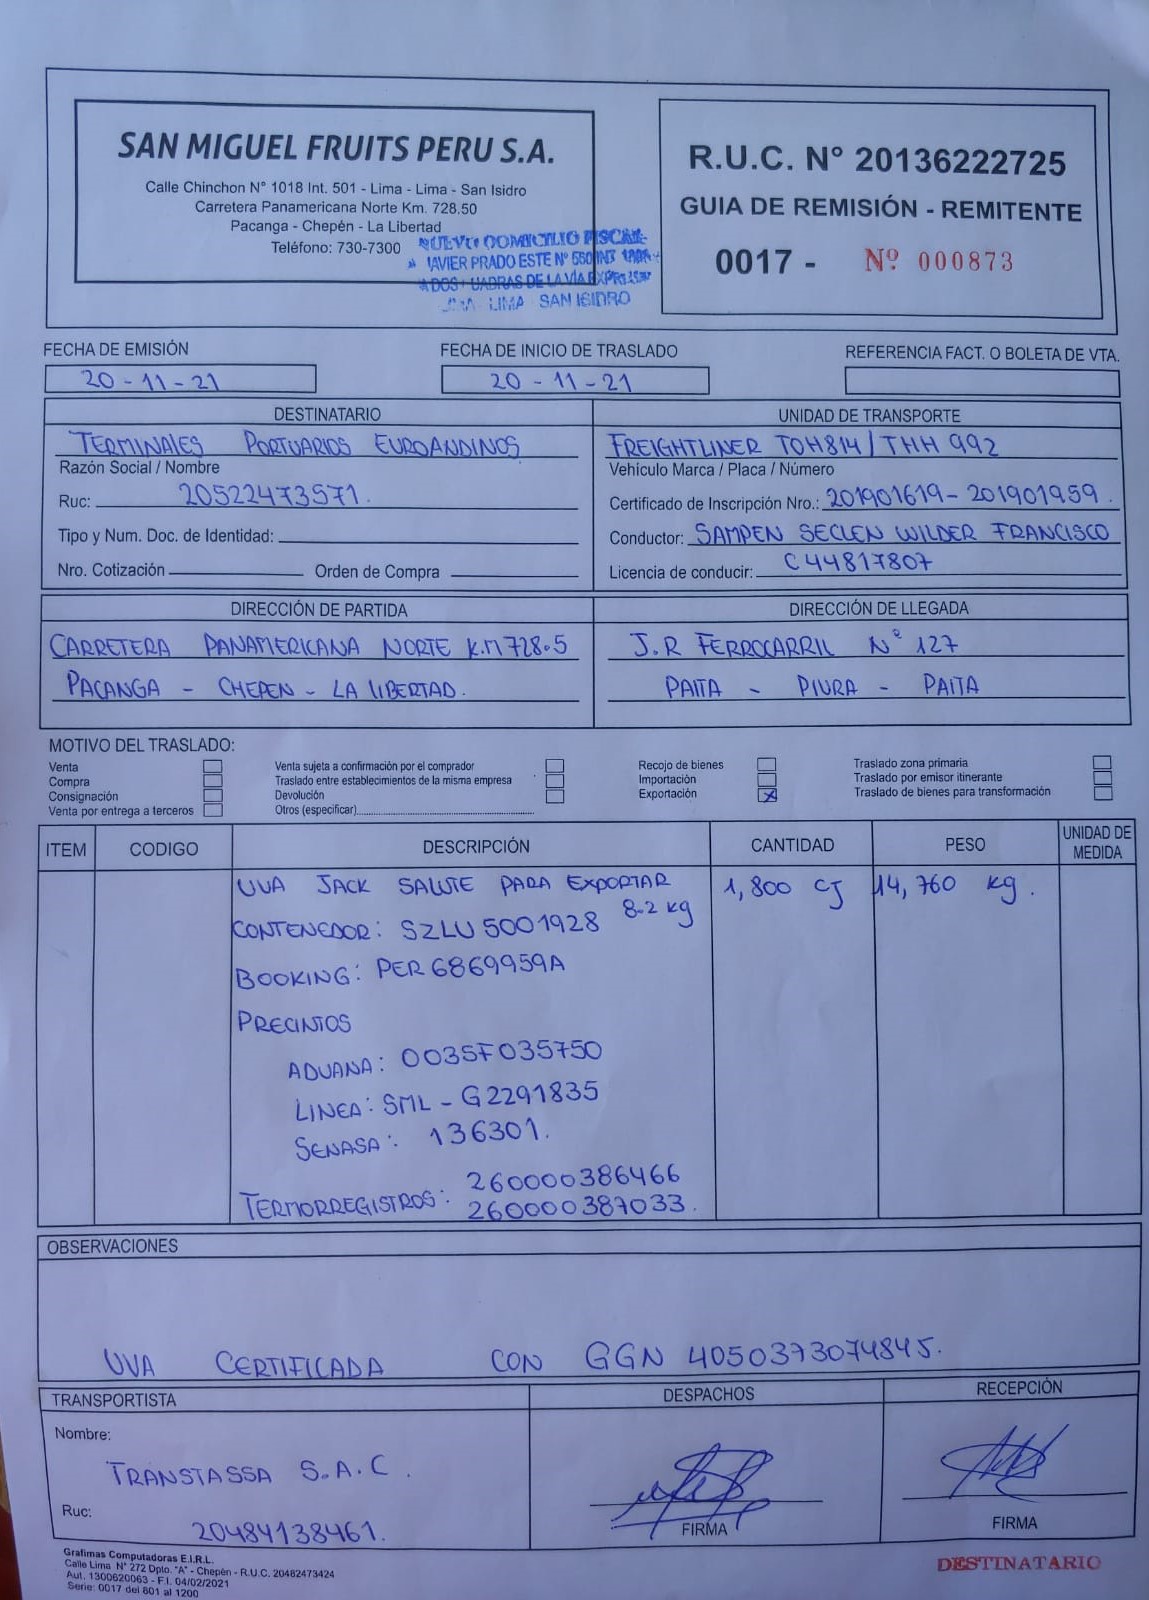 SAN MIGUEL FRUITS PERU S.A.
Calle Chinchon N° 1018 Int. 501 - Lima - Lima - San Isidro
Carretera Panamericana Norte Km. 728.50
Pacanga - Chepén - La Libertad
Teléfono: 730-7300
NUEVO DOMICILIO FISCAL
JAVIER PRADO ESTE N° 550 INT
LIMA SAN ISIDRO
R.U.C. N° 20136222725
GUIA DE REMISIÓN - REMITENTE
0017 - Nº 000873
FECHA DE EMISIÓN
20 - 11 - 21
FECHA DE INICIO DE TRASLADO
20 - 11 - 21
REFERENCIA FACT. O BOLETA DE VTA.
DESTINATARIO
TERMINALES PORTUARIOS EUROANDINOS
Razón Social / Nombre
Ruc: 20522473571.
Tipo y Num. Doc. de Identidad:
Nro. Cotización Orden de Compra
UNIDAD DE TRANSPORTE
FREIGHTLINER TOH814 / THH 992
Vehículo Marca / Placa / Número
Certificado de Inscripción Nro.: 201901619 - 201901959.
Conductor: SAMPEN SECLEN WILDER FRANCISCO
Licencia de conducir: C44817807
DIRECCIÓN DE PARTIDA
CARRETERA PANAMERICANA NORTE K.M 728.5
PACANGA - CHEPEN - LA LIBERTAD.
DIRECCIÓN DE LLEGADA
J.R FERROCARRIL N° 127
PAITA - PIURA - PAITA
MOTIVO DEL TRASLADO:
Venta
Compra
Consignación
Venta por entrega a terceros
Venta sujeta a confirmación por el comprador
Traslado entre establecimientos de la misma empresa
Devolución
Otros (especificar)
Recojo de bienes
Importación
Exportación X
Traslado zona primaria
Traslado por emisor itinerante
Traslado de bienes para transformación
ITEM CODIGO DESCRIPCIÓN CANTIDAD PESO UNIDAD DE MEDIDA
UVA JACK SALUTE PARA EXPORTAR 1,800 CJ 14,760 kg.
8.2 kg
CONTENEDOR: SZLU 5001928
BOOKING: PER6869959A
PRECINTOS
ADUANA: 0035F035750
LINEA: SML - G2291835
SENASA: 136301.
TERMORREGISTROS: 260000386466
260000387033.
OBSERVACIONES
UVA CERTIFICADA CON GGN 4050373074845.
TRANSPORTISTA
Nombre:
TRANSTASSA S.A.C.
Ruc:
20484138461.
DESPACHOS
FIRMA
RECEPCIÓN
FIRMA
Grafimas Computadoras E.I.R.L.
Calle Lima N° 272 Dpto. "A" - Chepén - R.U.C. 20482473424
Aut. 1300620063 - F.I. 04/02/2021
Serie: 0017 del 801 al 1200
DESTINATARIO